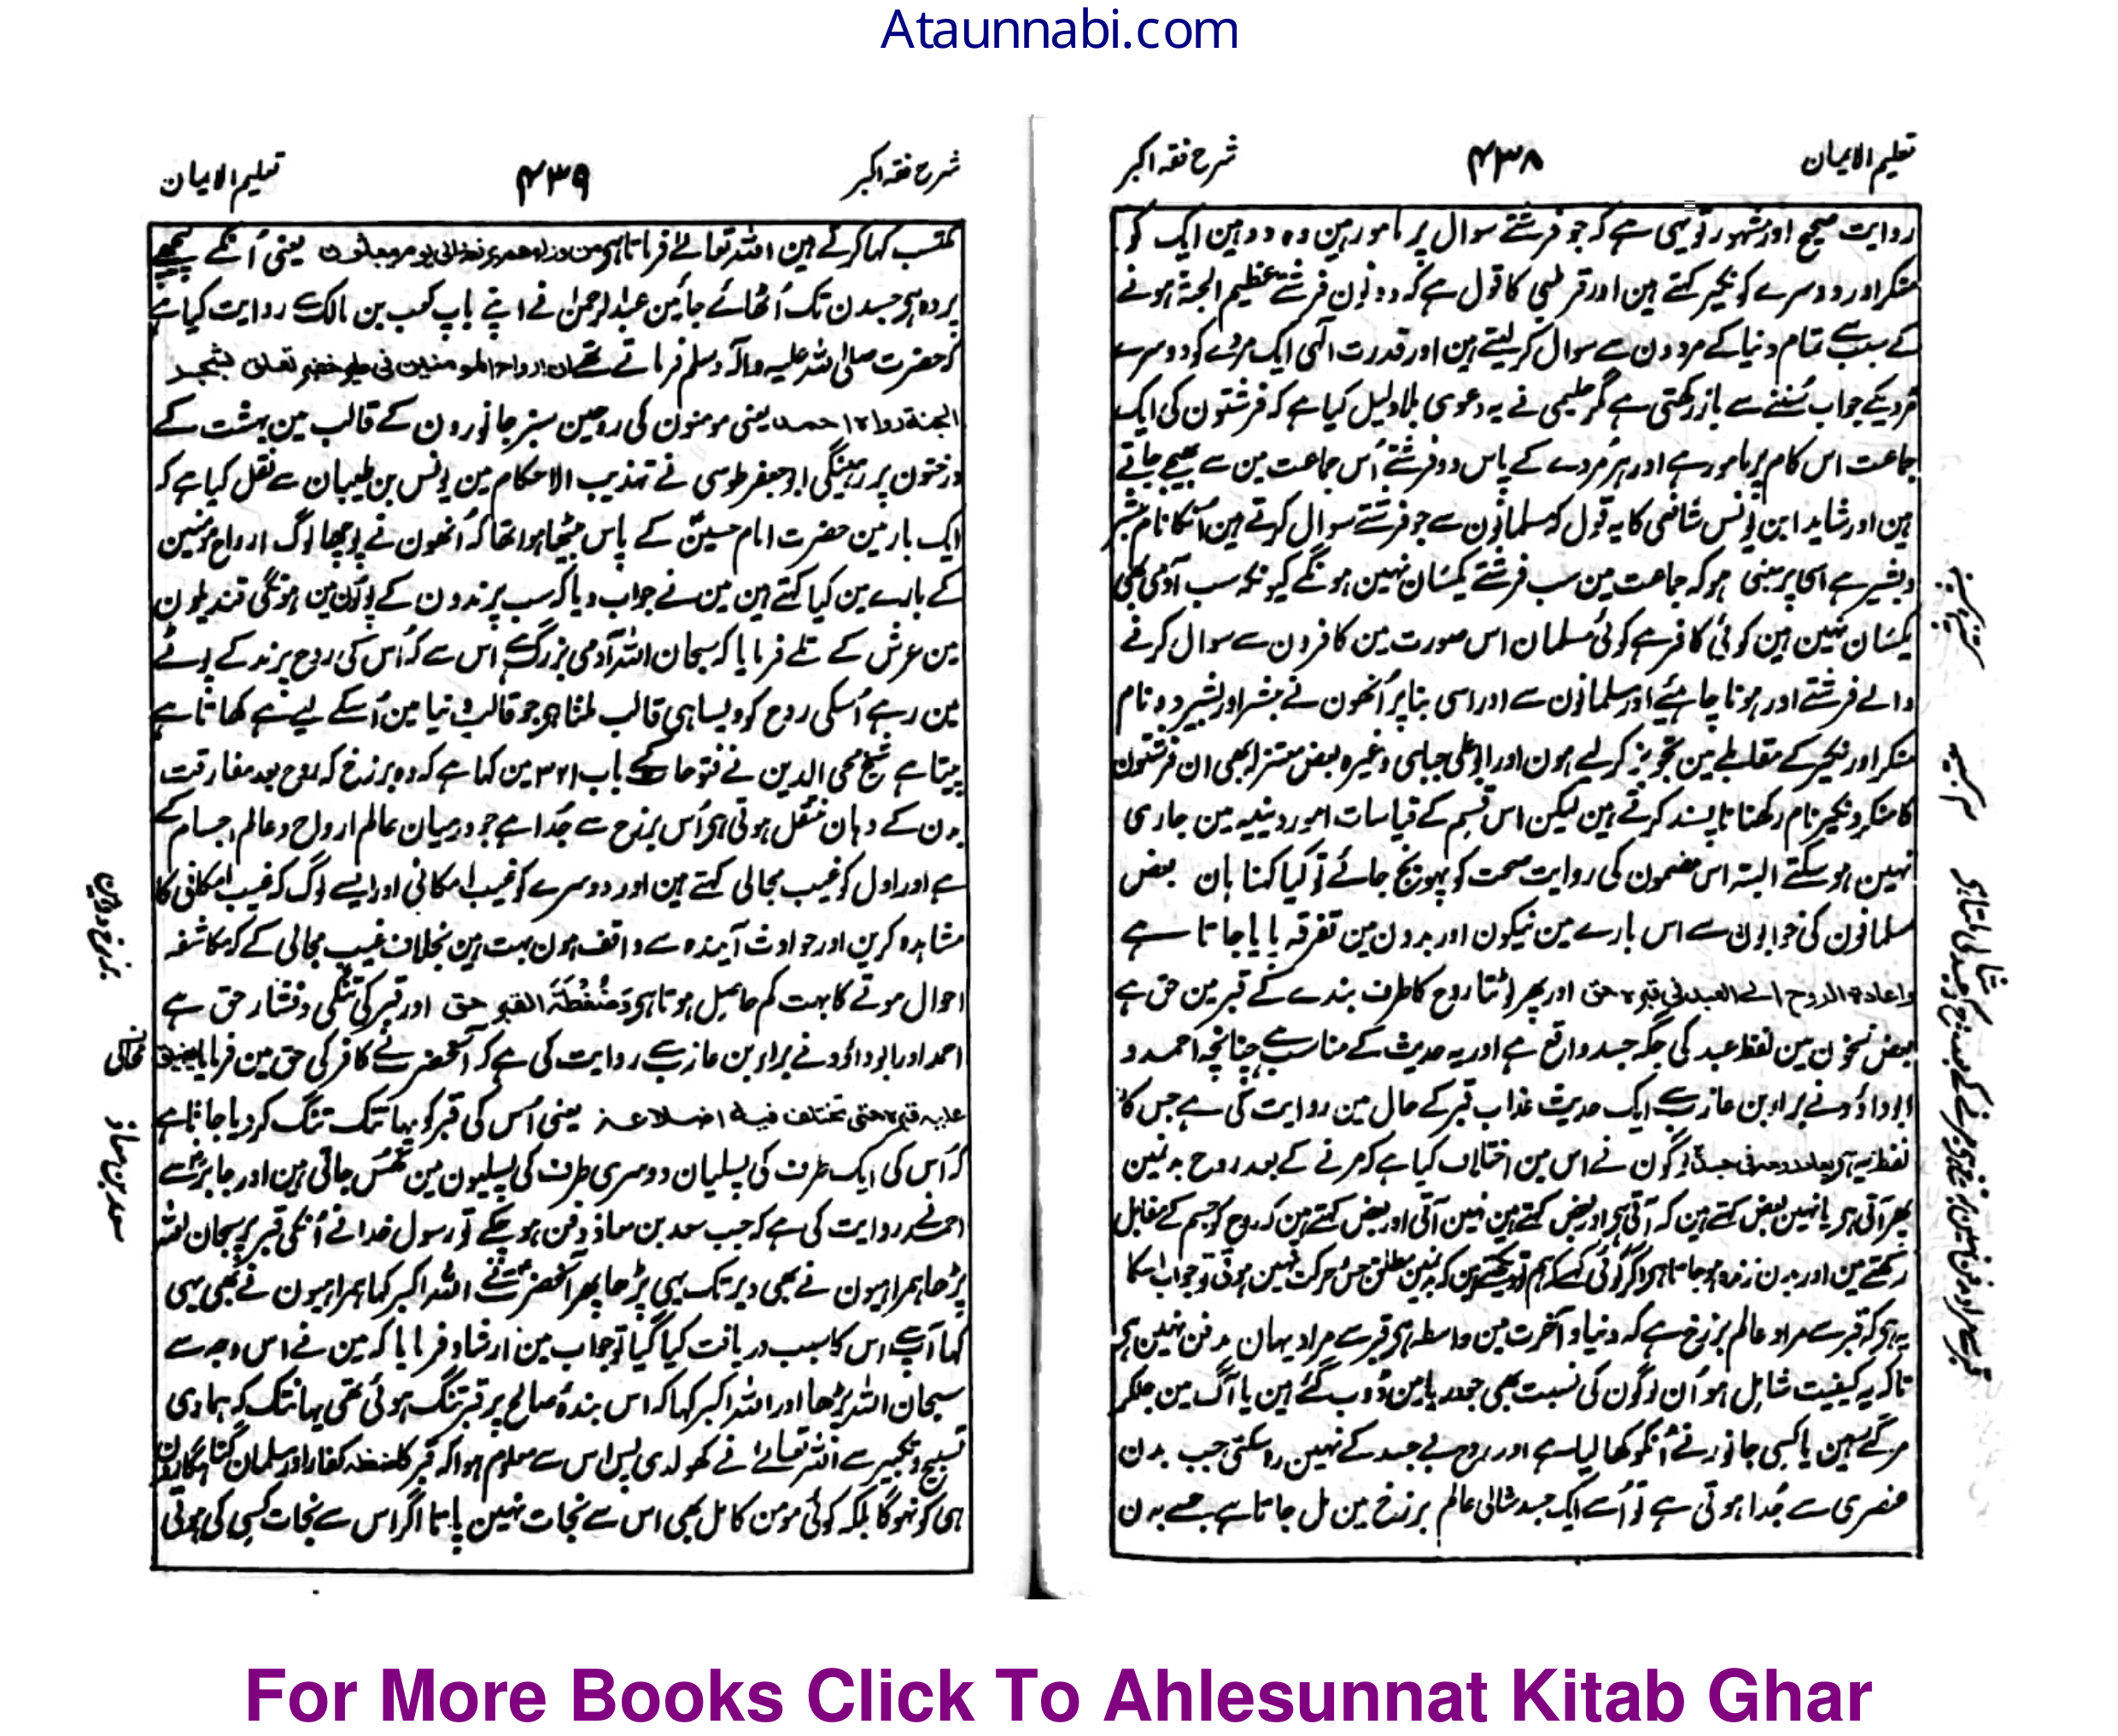 Ataunnabi.com
تعلیم الایمان
۴۳۸
شرح فقہ اکبر
روایت صحیح اور مشہور تو یہی ہے کہ جو فرشتے سوال پر مامور ہین وہ دو ہین ایک کو
منکر اور دوسرے کو نکیر کہتے ہین اور قرطبی کا قول ہے کہ دونون فرشتے عظیم الجثہ ہونے
کے سبب سے تمام دنیا کے مردون سے سوال کر لیتے ہین اور قدرت الٰہی ایک مردے کو دوسرے
مردیکے جواب سُننے سے باز رکھتی ہے مگر حلیمی نے یہ دعوی بلا دلیل کیا ہے کہ فرشتون کی ایک
جماعت اس کام پر مامور ہے اور ہر مُردے کے پاس دو فرشتے اُس جماعت مین سے بھیجے جاتے
ہین اور شاید ابن یونس شافعی کا یہ قول کہ مسلمانون سے جو فرشتے سوال کرتے ہین اُنکا نام مبشر
و بشیر ہے اسی پر مبنی ہو کہ جماعت مین سب فرشتے یکسان نہین ہونگے کیونکہ سب آدمی بھی
یکسان نہین ہین کوئی کافر ہے کوئی مسلمان اس صورت مین کافرون سے سوال کرنے
والے فرشتے اور ہونا چاہئے اور مسلمانون سے اور اسی بنا پر اُنھون نے مبشر اور بشیر دو نام
منکر اور نکیر کے مقابلے مین تجویز کر لیے ہون اور ابو علی جبائی وغیرہ بعض معتزلہ بھی ان فرشتون
کا منکر و نکیر نام رکھنا ناپسند کرتے ہین لیکن اس قسم کے قیاسات امور دینیہ مین جاری
نہین ہو سکتے البتہ اس مضمون کی روایت صحت کو پہونچ جائے تو کیا کہنا ہان بعض
مسلمانون کی خوابون سے اس بارے مین نیکون اور بدون مین تفرقہ پایا جاتا ہے
واعادۃ الروح الے العبد فی قبرہ حق اور پھر لوٹنا روح کا طرف بندے کے قبر مین حق ہے
بعض نسخون مین لفظ عبد کی جگہ جسد واقع ہے اور یہ حدیث کے مناسب ہے چنانچہ احمد و
ابو داؤد نے براء بن عازب سے ایک حدیث عذاب قبر کے حال مین روایت کی ہے جس کا
لفظ یہ ہے لوگون نے اس مین اختلاف کیا ہے کہ مرنے کے بعد روح بدنمین
پھر آتی ہی یا نہین بعض کہتے ہین کہ آتی ہی اور بعض کہتے ہین نہین آتی اور بعض کہتے ہین کہ روح کو جسم کے مقابل
رکھتے ہین اور بدن زندہ ہو جاتا ہی اگر کوئی کہے کہ ہم تو دیکھتے ہین کہ بدنمین مطلق حس حرکت نہین ہوتی تو جواب اسکا
یہ ہی کہ قبر سے مراد عالم برزخ ہے کہ دنیا و آخرت مین واسطہ ہی قبر سے مراد یہان مدفن نہین ہی
تاکہ یہ کیفیت شامل ہو اُن لوگون کی نسبت بھی جو دریا مین ڈوب گئے ہین یا آگ مین جلکر
مر گئے ہین یا کسی جانور نے اُنکو کھا لیا ہے اور روح بے جسد کے نہین رہ سکتی جب بدن
عنصری سے جُدا ہوتی ہے تو اُسے ایک جسد مثالی عالم برزخ مین مل جاتا ہے جسے بدن
شرح فقہ اکبر
۴۳۹
تعلیم الایمان
مکتسب کہا کرتے ہین اللہ تعالےٰ فرماتا ہی یعنی اُنکے پیچھے
پردہ ہی جسدن تک اُٹھائے جائین عبدالرحمٰن نے اپنے باپ کعب بن مالک سے روایت کیا ہے
کہ حضرت صلی اللہ علیہ وآلہ وسلم فرماتے تھے ان ارواح المومنین فی طیر خضر تعلق بشجر
الجنۃ رواہ احمد یعنی مومنون کی روحین سبز جانورون کے قالب مین بہشت کے
درختون پر رہینگی ابو جعفر طوسی نے تہذیب الاحکام مین یونس بن ظبیان سے نقل کیا ہے کہ
ایک بار مین حضرت امام حسین کے پاس بیٹھا ہوا تھا کہ اُنھون نے پوچھا لوگ ارواح مومنین
کے بارے مین کیا کہتے ہین مین نے جواب دیا کہ سبز پرندون کے پوٹون مین ہونگی قندیلون
مین عرش کے تلے فرمایا کہ سبحان اللہ آدمی بزرگ ہے اس سے کہ اُس کی روح پرند کے پوٹے
مین رہے اُسکی روح کو ویسا ہی قالب ملتا ہی جو قالب دنیا مین اُسکے لیے ہے کھاتا ہے
پیتا ہے شیخ محی الدین نے فتوحات کے باب ۳۲۱ مین کہا ہے کہ وہ برزخ کہ روح بعد مفارقت
بدن کے وہان منتقل ہوتی ہی اُس برزخ سے جُدا ہے جو درمیان عالم ارواح و عالم اجسام کے
ہے اور اول کو غیب محالی کہتے ہین اور دوسرے کو غیب امکانی اور ایسے لوگ کہ غیب امکانی کا
مشاہدہ کرین اور حوادث آیندہ سے واقف ہون بہت ہین بخلاف غیب محالی کے کہ مکاشفہ
احوال موتے کا بہت کم حاصل ہوتا ہی وَضُغْطَۃُ القبر حق اور قبر کی تنگی و فشار حق ہے
احمد اور ابو داؤد نے براء بن عازب سے روایت کی ہے کہ آنحضرت نے کافر کی حق مین فرمایا یضیق
علیہ قبرہ حتی تختلف فیہ اضلاعہ یعنی اُس کی قبر کو یہانتک تنگ کر دیا جاتا ہے
کہ اُس کی ایک طرف کی پسلیان دوسری طرف کی پسلیون مین گھُس جاتی ہین اور جابر سے
احمد نے روایت کی ہے کہ جب سعد بن معاذ دفن ہو چکے تو رسول خدا نے اُنکی قبر پر سبحان اللہ
پڑھا ہمراہیون نے بھی دیر تک یہی پڑھا پھر آنحضرت نے اللہ اکبر کہا ہمراہیون نے بھی یہی
کہا آپ سے اس کا سبب دریافت کیا گیا تو جواب مین ارشاد فرمایا کہ مین نے اس وجہ سے
سبحان اللہ پڑھا اور اللہ اکبر کہا کہ اس بندۂ صالح پر قبر تنگ ہوئی تھی یہانتک کہ ہماری
تسبیح و تکبیر سے اللہ تعالےٰ نے کھولدی پس اس سے معلوم ہوا کہ قبر کا ضغطہ کفار اور مسلمان گناہگارون
ہی کو نہوگا بلکہ کوئی مومن کامل بھی اس سے نجات نہین پاتا اگر اس سے نجات کسی کی ہوتی
برزخ دو ہین
سعد بن معاذ
For More Books Click To Ahlesunnat Kitab Ghar